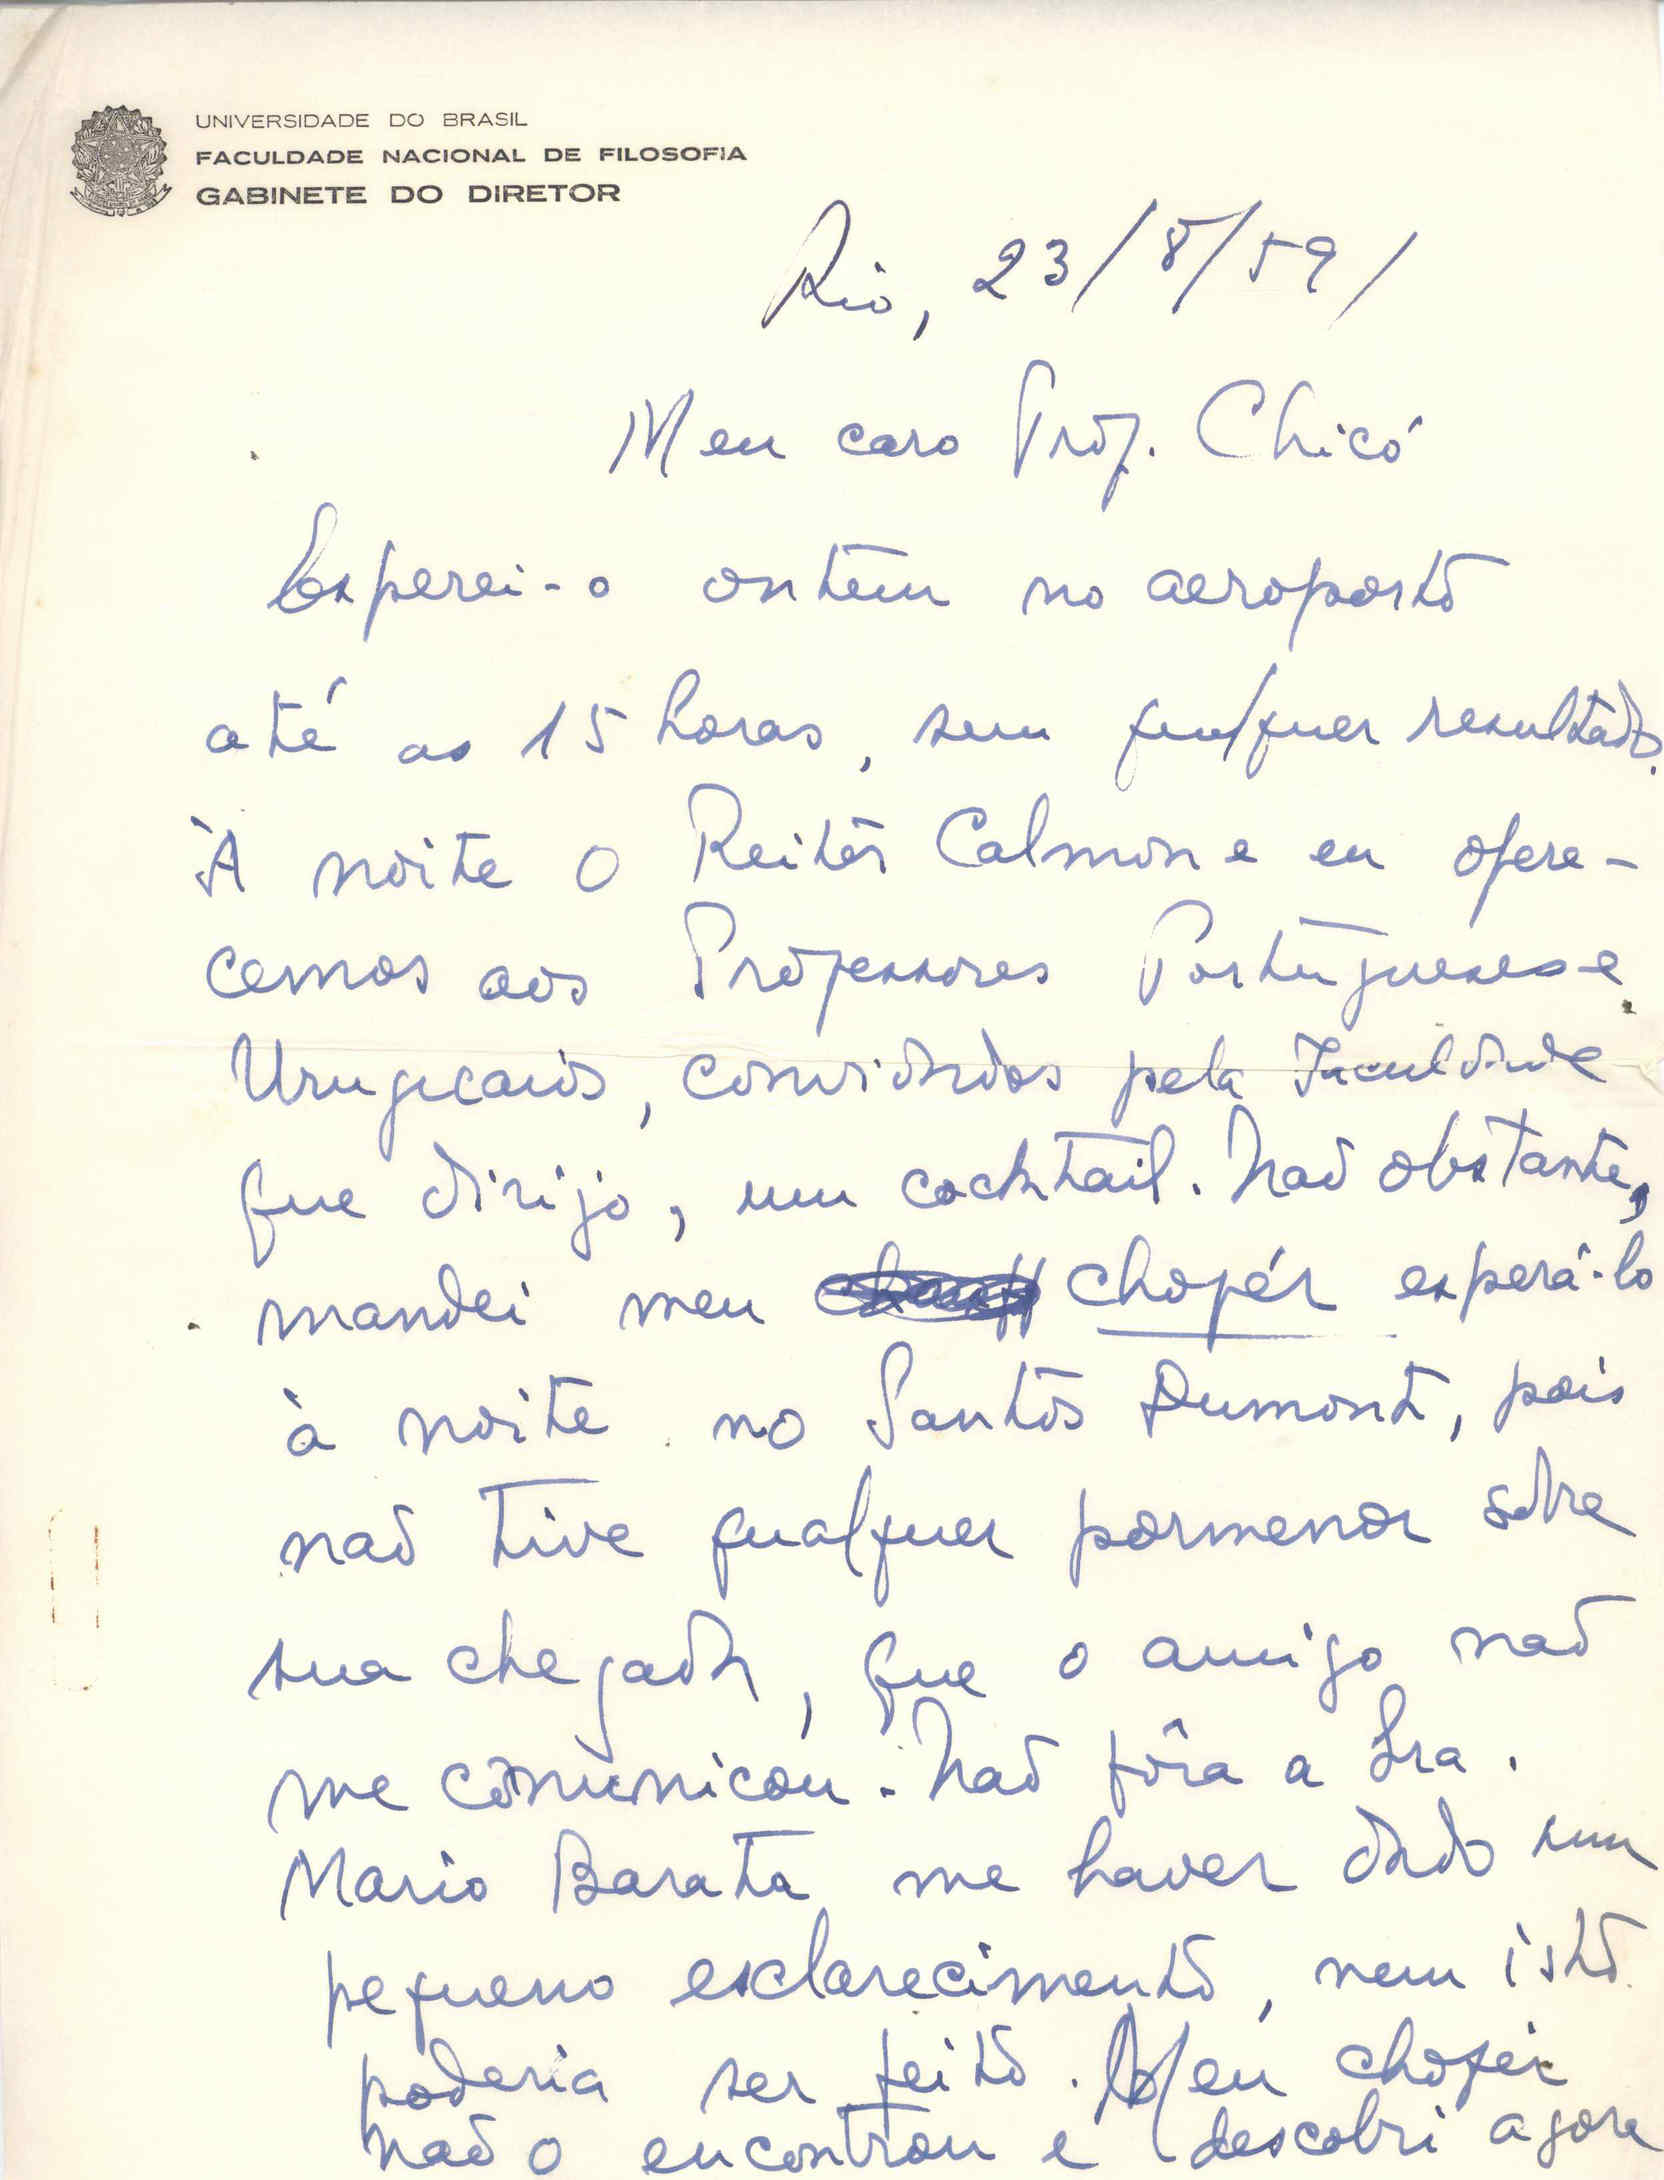 UNIVERSIDADE DO BRASIL
FACULDADE NACIONAL DE FILOSOFIA
GABINETE DO DIRETOR
Rio, 23/8/59/
Meu caro Prof. Chicó
Esperei-o ontem no aeroporto
até as 15 horas, sem qualquer resultado.
À noite o Reitor Calmon e eu ofere-
cemos aos Professores Portugueses e
Uruguaios, convidados pela Faculdade
que dirijo, um cocktail. Não obstante,
mandei meu chofér esperá-lo
à noite no Santos Dumont, pois
não tive qualquer pormenor sobre
sua chegada, que o amigo não
me comunicou. Não fôra a Sra.
Mario Barata me haver dado um
pequeno esclarecimento, nem isto
poderia ser feito. Meu chofér
não o encontrou e descobri agora